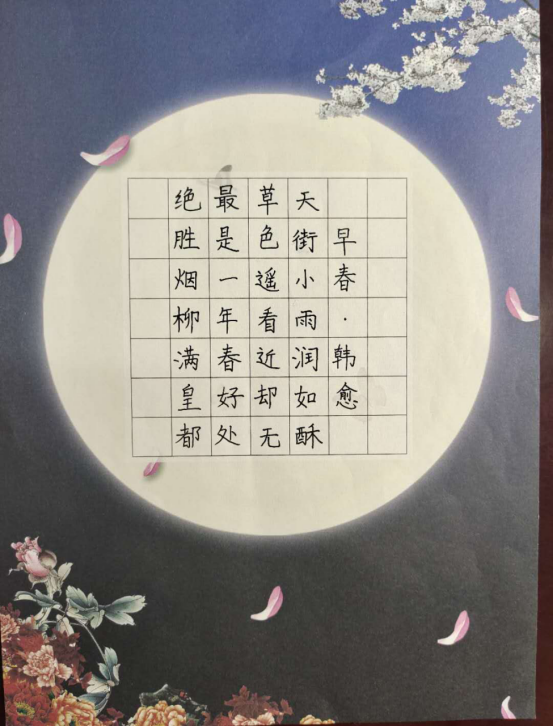 早春·韩愈
天街小雨润如酥
草色遥看近却无
最是一年春好处
绝胜烟柳满皇都